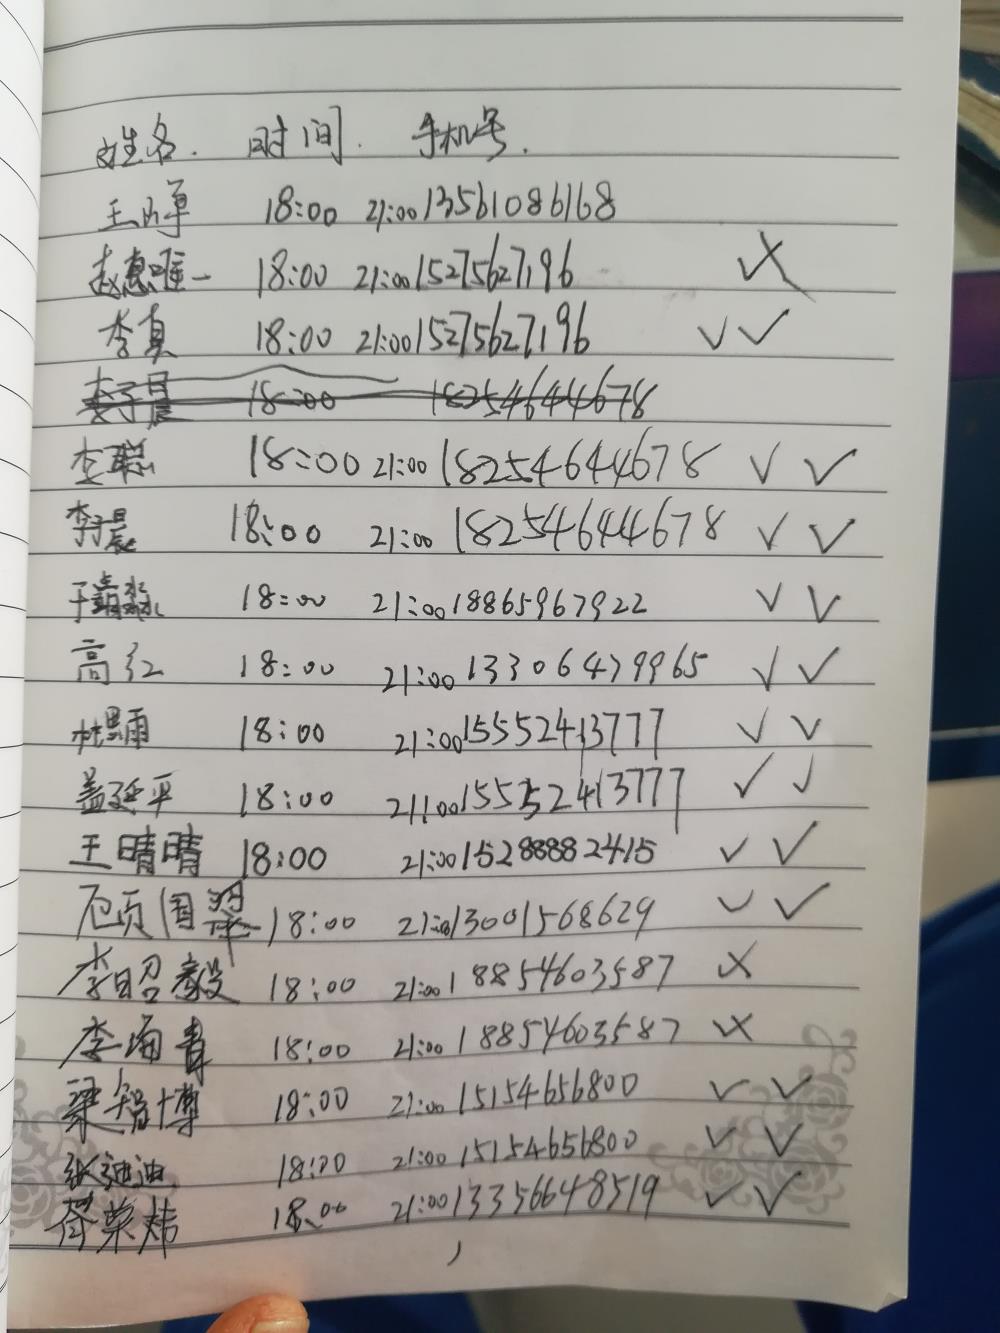 姓名. 时间. 手机号.
王 18:00 21:00 13561086168
赵惠唯一 18:00 21:00 15275627196
李真 18:00 21:00 15275627196
李子晨 18:00 18254644678
李聪 18:00 21:00 18254644678
李子晨 18:00 21:00 18254644678
于 18:00 21:00 18865967922
高红 18:00 21:00 13306479965
雨 18:00 21:00 15552413777
盖延平 18:00 21:00 15552413777
王晴晴 18:00 21:00 15288882415
国翠 18:00 21:00 13001568629
李昭毅 18:00 21:00 18854603587
李海青 18:00 21:00 18854603587
梁智博 18:00 21:00 15154656800
张迪迪 18:00 21:00 15154656800
荣炜 18:00 21:00 13356648519